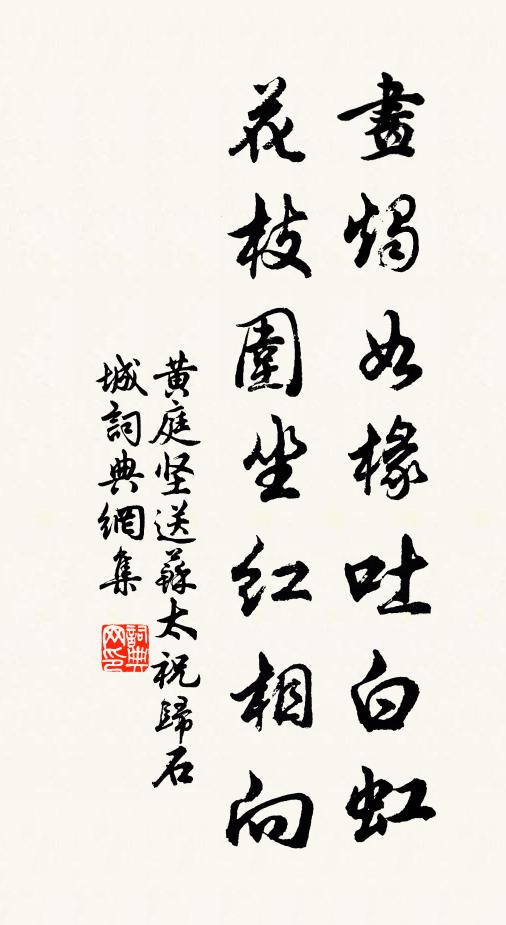 畫燭如椽吐白虹
花枝圍坐紅相向
黄庭坚送蘇太祝歸石
城詞典網集
詞典
网印